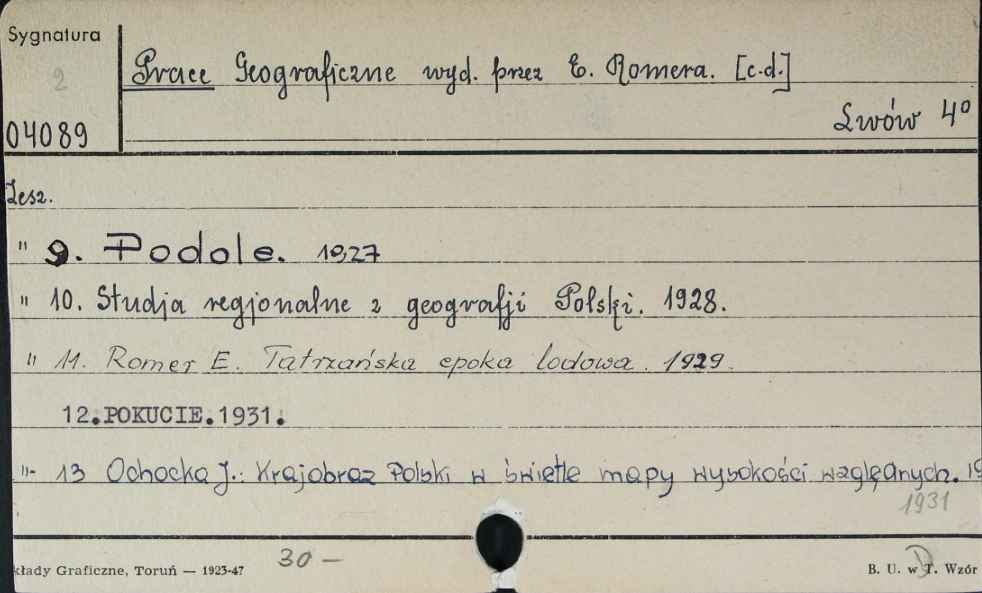 Sygnatura
2
04089
Prace Geograficzne wyd. przez E. Romera. [c.d.]
Lwów 4º
Zesz.
" 9. Podole. 1927
" 10. Studja regjonalne z geografji Polski. 1928.
" 11. Romer E. Tatrzańska epoka lodowa. 1929.
12.POKUCIE.1931.
"- 13 Ochocka J.: Krajobraz Polski w świetle mapy wysokości względnych. 19
1931
30 —
kłady Graficzne, Toruń — 1923-47
B. U. w T. Wzór